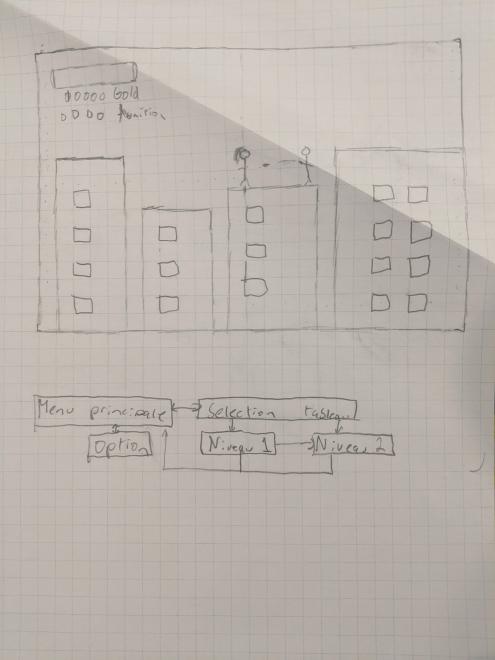 00000 Gold
0000 Munition
Menu principale
Selection tableau
Option
Niveau 1
Niveau 2